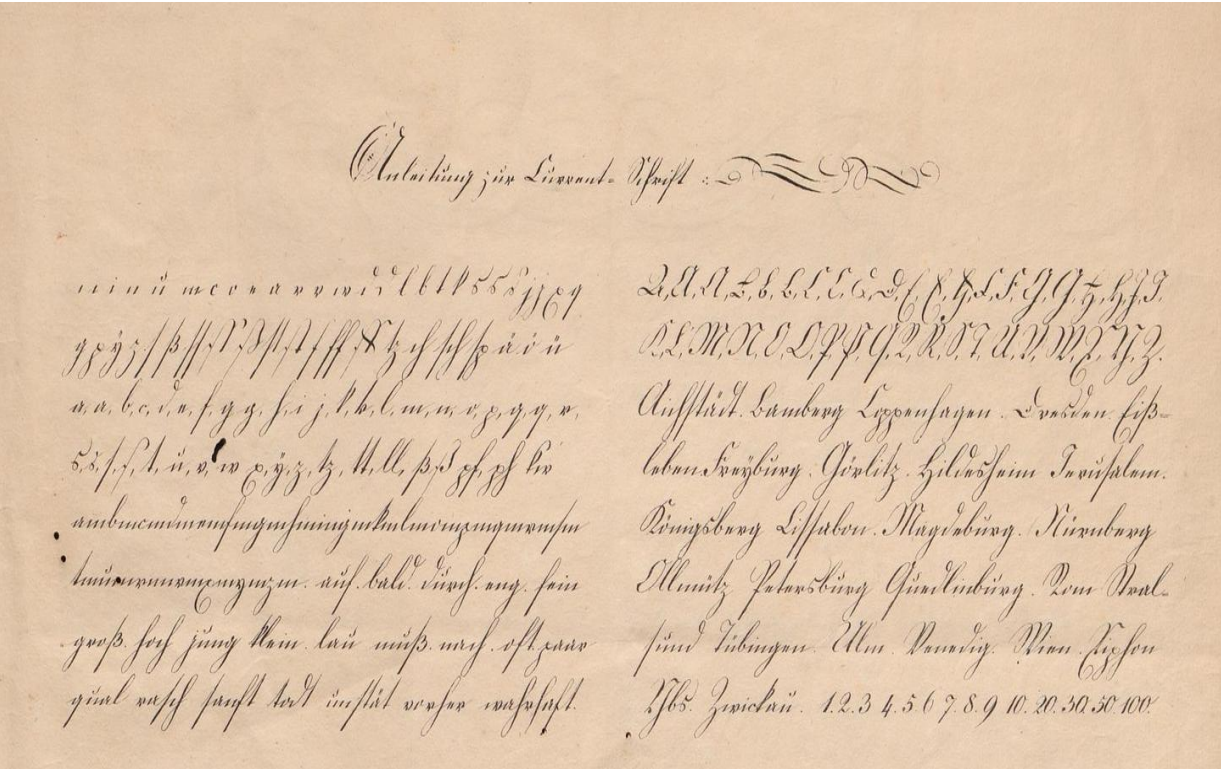 Anleitung zur Current-Schrift
a, a, b, c, d, e, f, g, g, h, i, j, k, k, l, m, n, o, p, q, q, r,
s, s, f, s, t, u, v, w, x, y, z, tz, tt, ll, ß, ß, pf, ph
ambmcmdmemfmgmhmimjmkmlmompmqmrmsm
tmumvmwmxmymzm. auf. bald. durch. eng. fein
groß. hoch jung klein. lau muß. nach. oft. paar
qual rasch sanft todt unstät vorher wahrhaft.
K, L, M, N, O, O, P, P, Q, R, R, S, T, U, V, W, X, Y, Z.
Aichstädt. Bamberg Coppenhagen. Dresden. Eiß-
leben. Freyburg. Görlitz. Hildesheim Jerusalem.
Königsberg Lissabon. Magdeburg. Nürnberg
Ollmütz Petersburg Quedlinburg. Rom Stral-
sund Tübingen. Ulm. Venedig. Wien. Xiphon
Zwickau. 1. 2. 3 4. 5. 6 7. 8. 9 10. 20. 30. 50. 100.